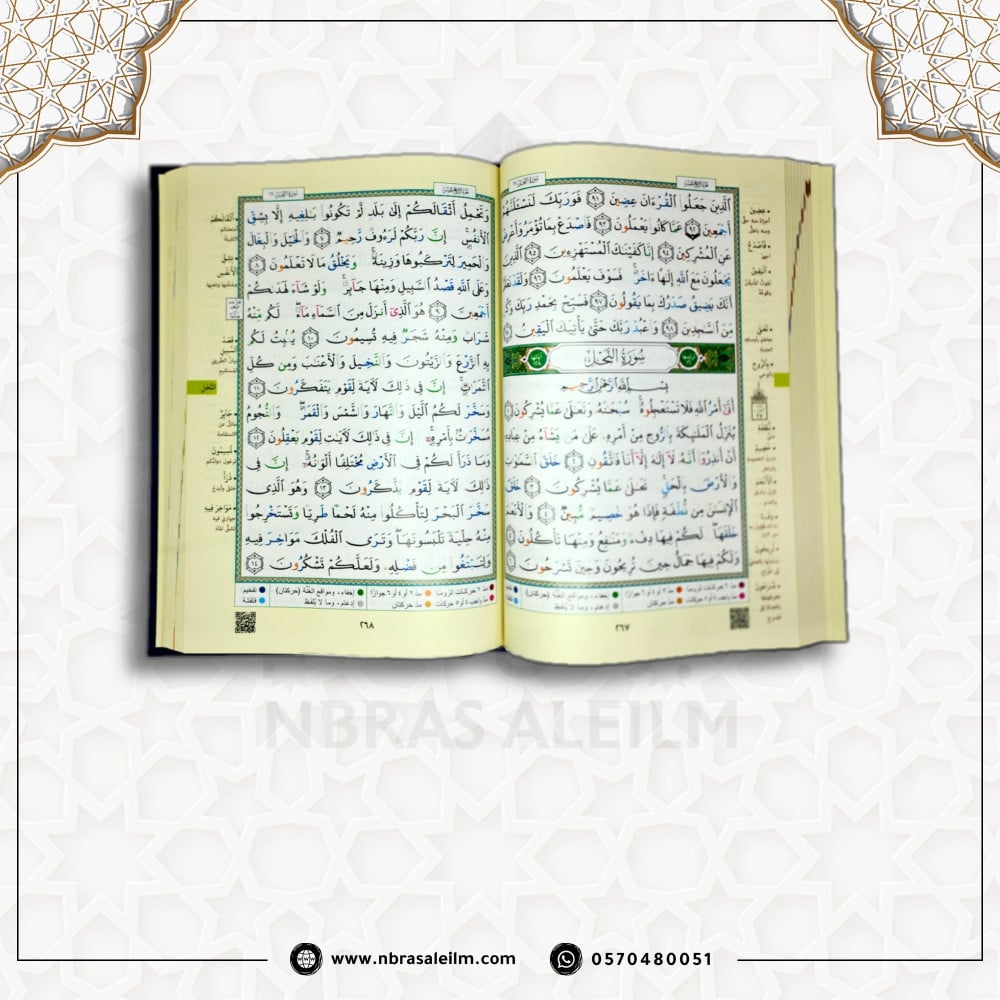 سُورَةُ الحِجْر
الَّذِينَ جَعَلُوا الْقُرْءَانَ عِضِينَ ٩١ فَوَرَبِّكَ لَنَسْـَٔلَنَّهُمْ
أَجْمَعِينَ ٩٢ عَمَّا كَانُوا يَعْمَلُونَ ٩٣ فَاصْدَعْ بِمَا تُؤْمَرُ وَأَعْرِضْ
عَنِ الْمُشْرِكِينَ ٩٤ إِنَّا كَفَيْنَٰكَ الْمُسْتَهْزِءِينَ ٩٥ الَّذِينَ
يَجْعَلُونَ مَعَ اللَّهِ إِلَٰهًا ءَاخَرَ فَسَوْفَ يَعْلَمُونَ ٩٦ وَلَقَدْ نَعْلَمُ
أَنَّكَ يَضِيقُ صَدْرُكَ بِمَا يَقُولُونَ ٩٧ فَسَبِّحْ بِحَمْدِ رَبِّكَ وَكُن
مِّنَ السَّٰجِدِينَ ٩٨ وَاعْبُدْ رَبَّكَ حَتَّىٰ يَأْتِيَكَ الْيَقِينُ ٩٩
سُورَةُ النَّحْلِ
بِسْمِ اللَّهِ الرَّحْمَٰنِ الرَّحِيمِ
أَتَىٰ أَمْرُ اللَّهِ فَلَا تَسْتَعْجِلُوهُ سُبْحَٰنَهُ وَتَعَٰلَىٰ عَمَّا يُشْرِكُونَ ١
يُنَزِّلُ الْمَلَٰٓئِكَةَ بِالرُّوحِ مِنْ أَمْرِهِ عَلَىٰ مَن يَشَآءُ مِنْ عِبَادِهِ
أَنْ أَنذِرُوا أَنَّهُ لَآ إِلَٰهَ إِلَّآ أَنَا فَاتَّقُونِ ٢ خَلَقَ السَّمَٰوَٰتِ
وَالْأَرْضَ بِالْحَقِّ تَعَٰلَىٰ عَمَّا يُشْرِكُونَ ٣ خَلَقَ
الْإِنسَٰنَ مِن نُّطْفَةٍ فَإِذَا هُوَ خَصِيمٌ مُّبِينٌ ٤ وَالْأَنْعَٰمَ
خَلَقَهَا لَكُمْ فِيهَا دِفْءٌ وَمَنَٰفِعُ وَمِنْهَا تَأْكُلُونَ ٥
وَلَكُمْ فِيهَا جَمَالٌ حِينَ تُرِيحُونَ وَحِينَ تَسْرَحُونَ ٦
٢٦٧
وَتَحْمِلُ أَثْقَالَكُمْ إِلَىٰ بَلَدٍ لَّمْ تَكُونُوا بَٰلِغِيهِ إِلَّا بِشِقِّ
الْأَنفُسِ إِنَّ رَبَّكُمْ لَرَءُوفٌ رَّحِيمٌ ٧ وَالْخَيْلَ وَالْبِغَالَ
وَالْحَمِيرَ لِتَرْكَبُوهَا وَزِينَةً وَيَخْلُقُ مَا لَا تَعْلَمُونَ ٨
وَعَلَى اللَّهِ قَصْدُ السَّبِيلِ وَمِنْهَا جَآئِرٌ وَلَوْ شَآءَ لَهَدَىٰكُمْ
أَجْمَعِينَ ٩ هُوَ الَّذِي أَنزَلَ مِنَ السَّمَآءِ مَآءً لَّكُم مِّنْهُ
شَرَابٌ وَمِنْهُ شَجَرٌ فِيهِ تُسِيمُونَ ١٠ يُنۢبِتُ لَكُم
بِهِ الزَّرْعَ وَالزَّيْتُونَ وَالنَّخِيلَ وَالْأَعْنَٰبَ وَمِن كُلِّ
الثَّمَرَٰتِ إِنَّ فِي ذَٰلِكَ لَآيَةً لِّقَوْمٍ يَتَفَكَّرُونَ ١١
وَسَخَّرَ لَكُمُ الَّيْلَ وَالنَّهَارَ وَالشَّمْسَ وَالْقَمَرَ وَالنُّجُومُ
مُسَخَّرَٰتٌۢ بِأَمْرِهِ إِنَّ فِي ذَٰلِكَ لَآيَٰتٍ لِّقَوْمٍ يَعْقِلُونَ ١٢
وَمَا ذَرَأَ لَكُمْ فِي الْأَرْضِ مُخْتَلِفًا أَلْوَٰنُهُ إِنَّ فِي
ذَٰلِكَ لَآيَةً لِّقَوْمٍ يَذَّكَّرُونَ ١٣ وَهُوَ الَّذِي
سَخَّرَ الْبَحْرَ لِتَأْكُلُوا مِنْهُ لَحْمًا طَرِيًّا وَتَسْتَخْرِجُوا
مِنْهُ حِلْيَةً تَلْبَسُونَهَا وَتَرَى الْفُلْكَ مَوَاخِرَ فِيهِ
وَلِتَبْتَغُوا مِن فَضْلِهِ وَلَعَلَّكُمْ تَشْكُرُونَ ١٤
٢٦٨
NBRAS ALEILM
www.nbrasaleilm.com
0570480051